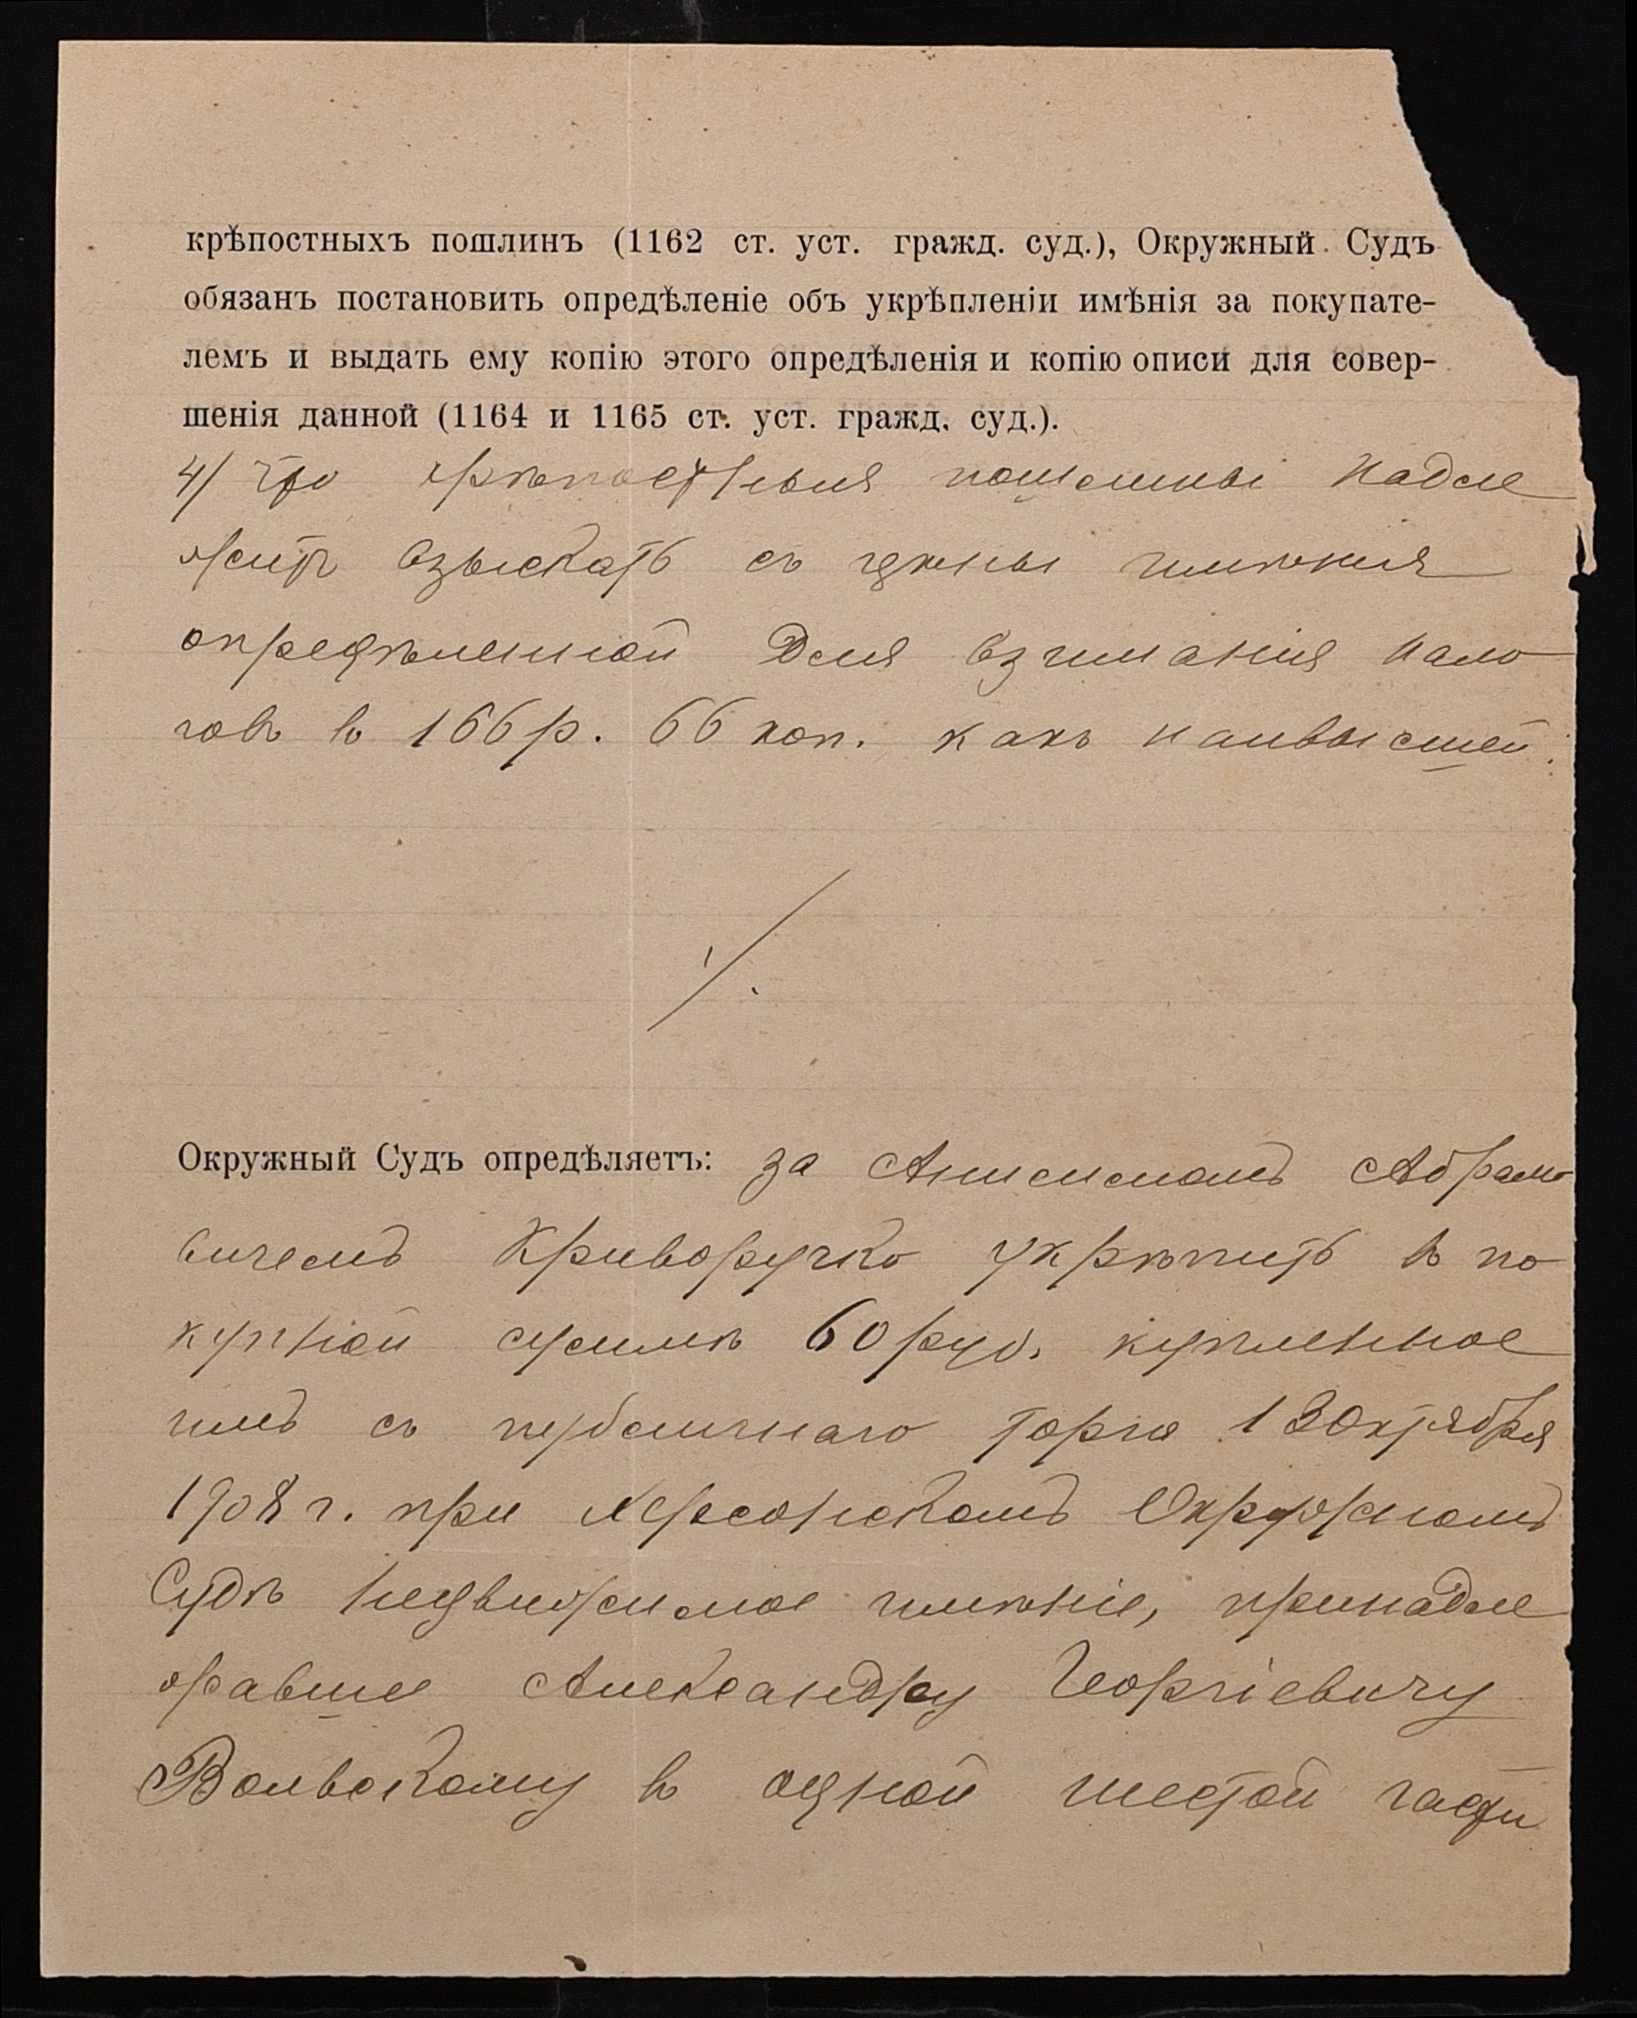 крѣпостныхъ пошлинъ (1162 ст. уст. гражд. суд.), Окружный Судъ
обязанъ постановить опредѣленіе объ укрѣпленіи имѣнія за покупате-
лемъ и выдать ему копію этого опредѣленія и копію описи для совер-
шенія данной (1164 и 1165 ст. уст. гражд. суд.).
4/ Что крѣпостныя пошлины надле
житъ взыскать съ цѣны имѣнія
опредѣленной для взиманія нало
говъ въ 166 р. 66 коп. какъ наивысшей.
Окружный Судъ опредѣляетъ: за Анисимомъ Абрамо
вичемъ Криворучко укрѣпить въ по
купной суммѣ 60 руб. купленное
имъ съ публичнаго торга 13 Октября
1908 г. при Херсонскомъ Окружномъ
Судѣ недвижимое имѣніе, принадле
жавшее Александру Георгіевичу
Вольскому въ одной шестой части